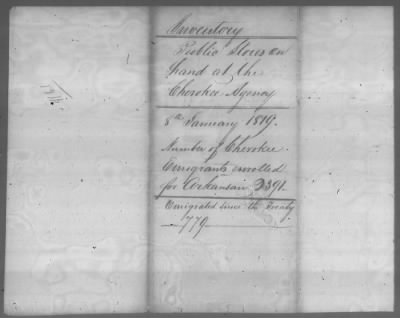 Inventory
Public Stores on
hand at the
Cherokee Agency
8th January 1819.
Number of Cherokee
Emigrants enrolled
for Arkansaw 3391.
Emigrated since the Treaty
— 779 —